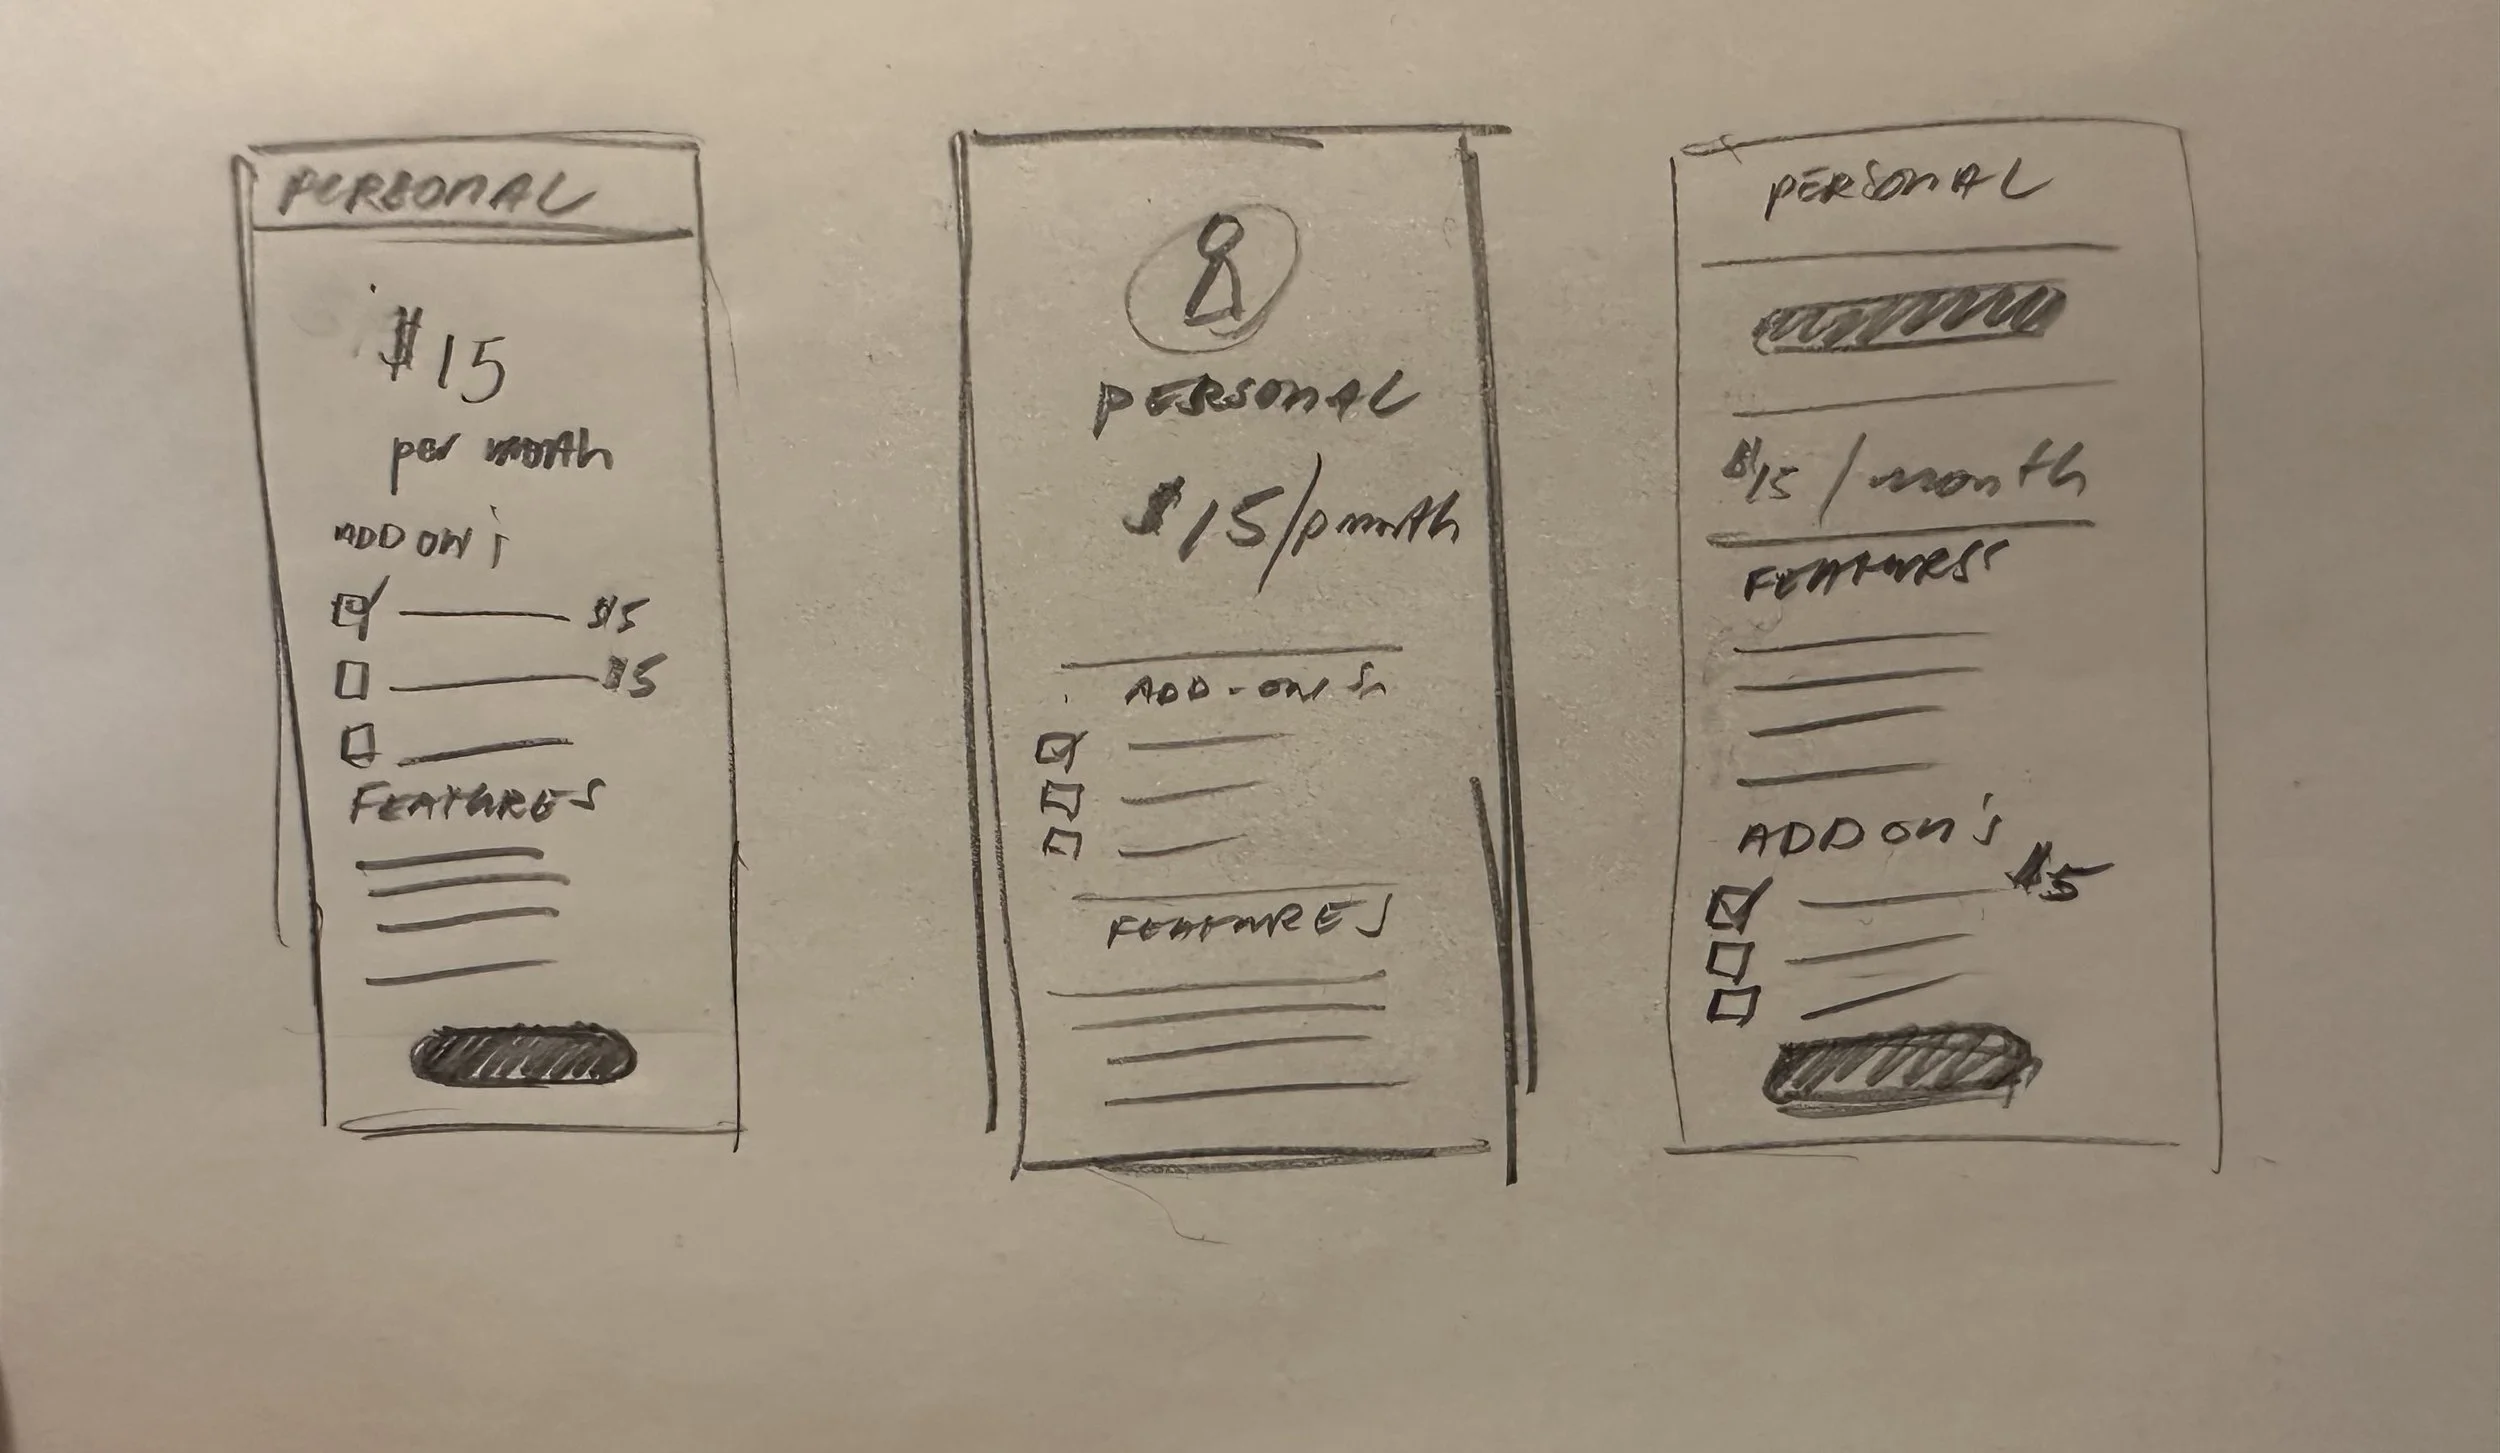 PERSONAL
$15
per month
ADD ON'S
$5
$5
FEATURES
PERSONAL
$15/pmonth
ADD-ON'S
FEATURES
PERSONAL
$15 / month
FEATURES
ADD ON'S
$5